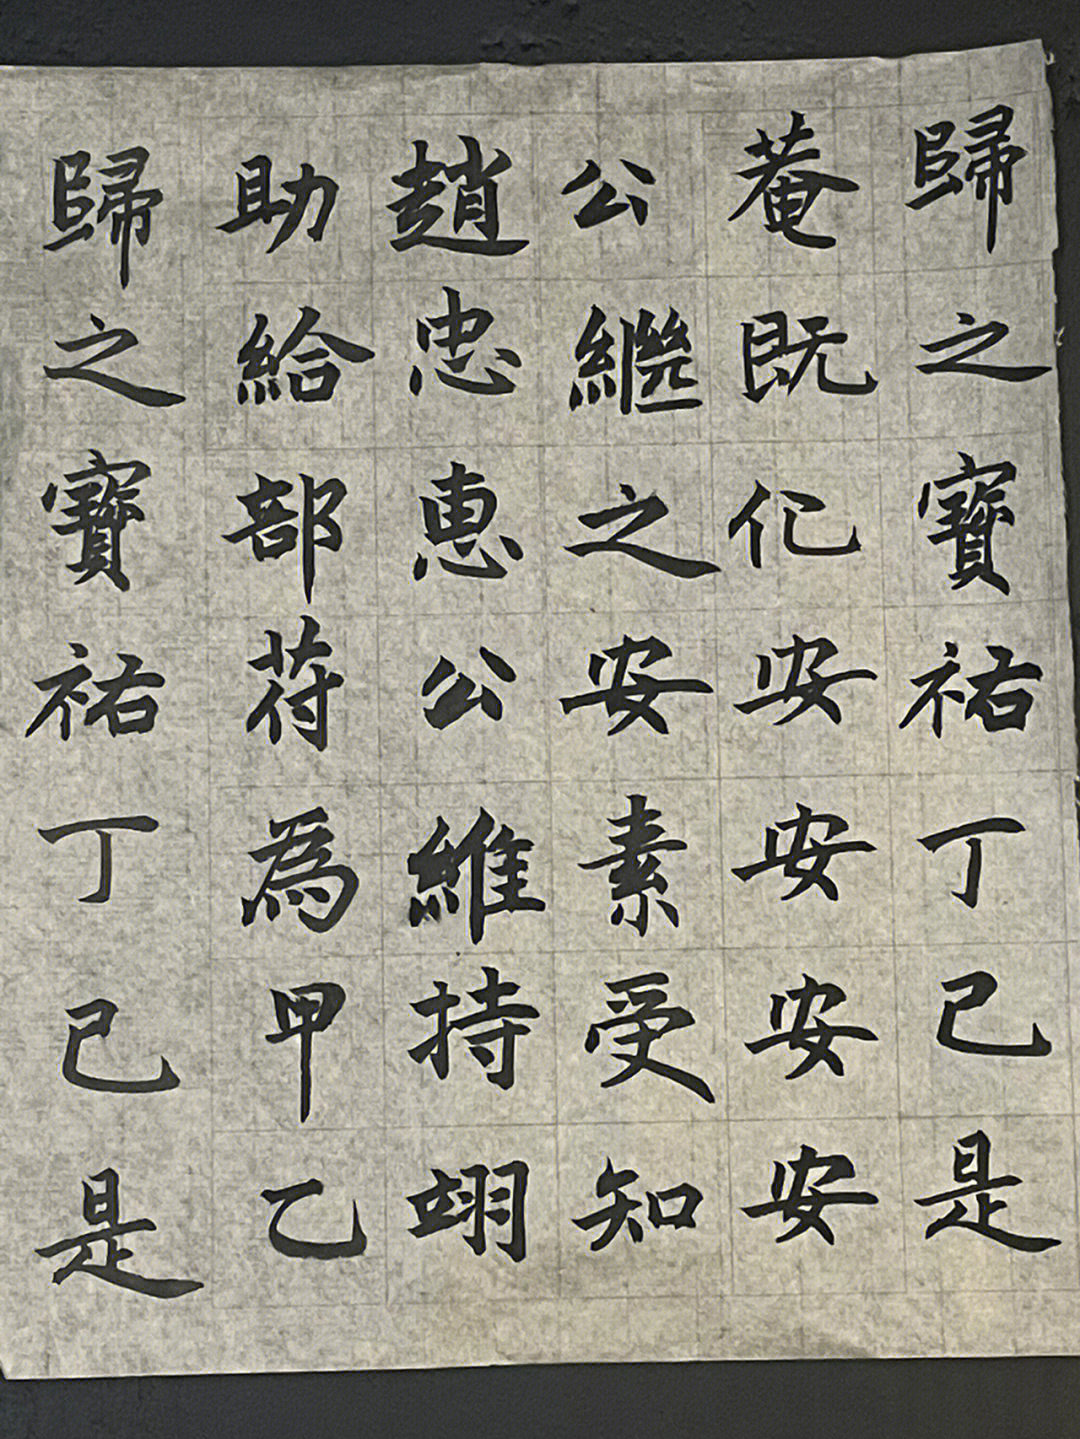 歸之寶祐丁已是
菴既化安安安安
公繼之安素受知
趙忠惠公維持翊
助給部苻為甲乙
歸之寶祐丁已是